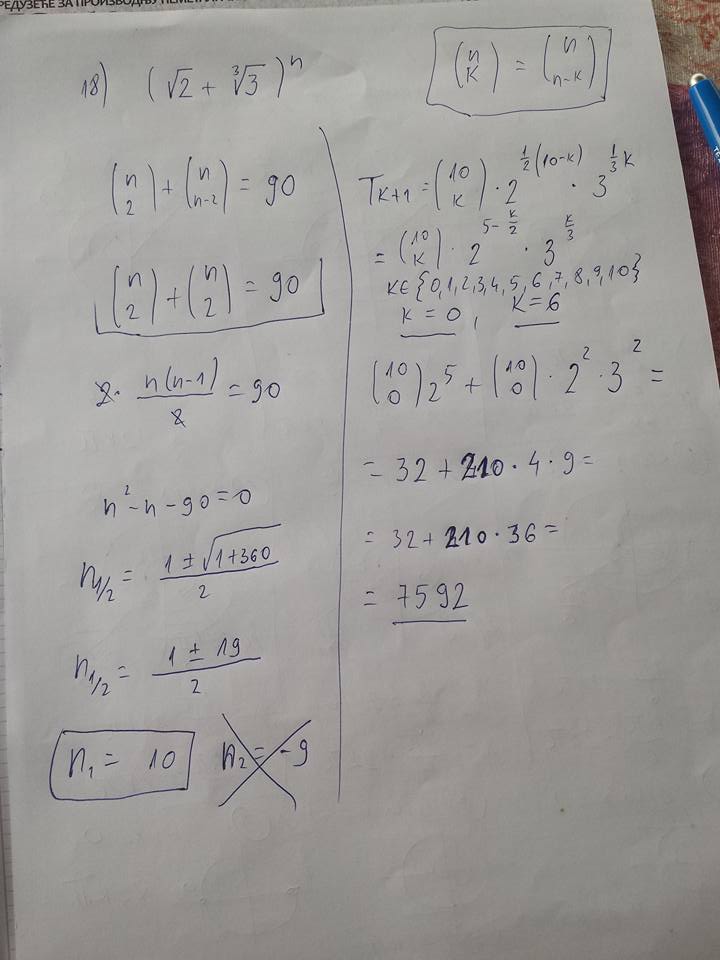 РЕДУЗЕЋЕ ЗА ПРОИЗВОДЊУ НЕМЕТАЛ
18) (√2 + ∛3)^n
(n 2) + (n n-2) = 90
(n 2) + (n 2) = 90
2 · n(n-1)/2 = 90
n² - n - 90 = 0
n1/2 = (1 ± √(1+360))/2
n1/2 = (1 ± 19)/2
n1 = 10 n2 = -9
(n K) = (n n-K)
TK+1 = (10 K) · 2^(1/2(10-K)) · 3^(1/3 K)
= (10 K) · 2^(5-K/2) · 3^(K/3)
K∈{0,1,2,3,4,5,6,7,8,9,10}
K = 0, K = 6
(10 0) 2^5 + (10 0) · 2² · 3² =
= 32 + 210 · 4 · 9 =
= 32 + 210 · 36 =
= 7592